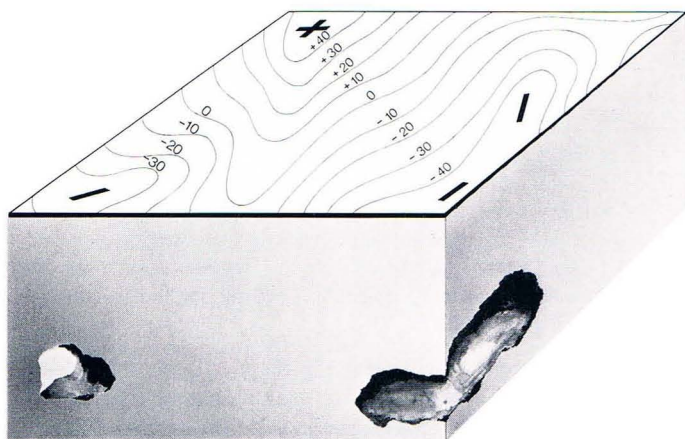 +
+40
+30
+20
+10
0
-10
-20
-30
-40
0
-10
-20
-30
-
-
-